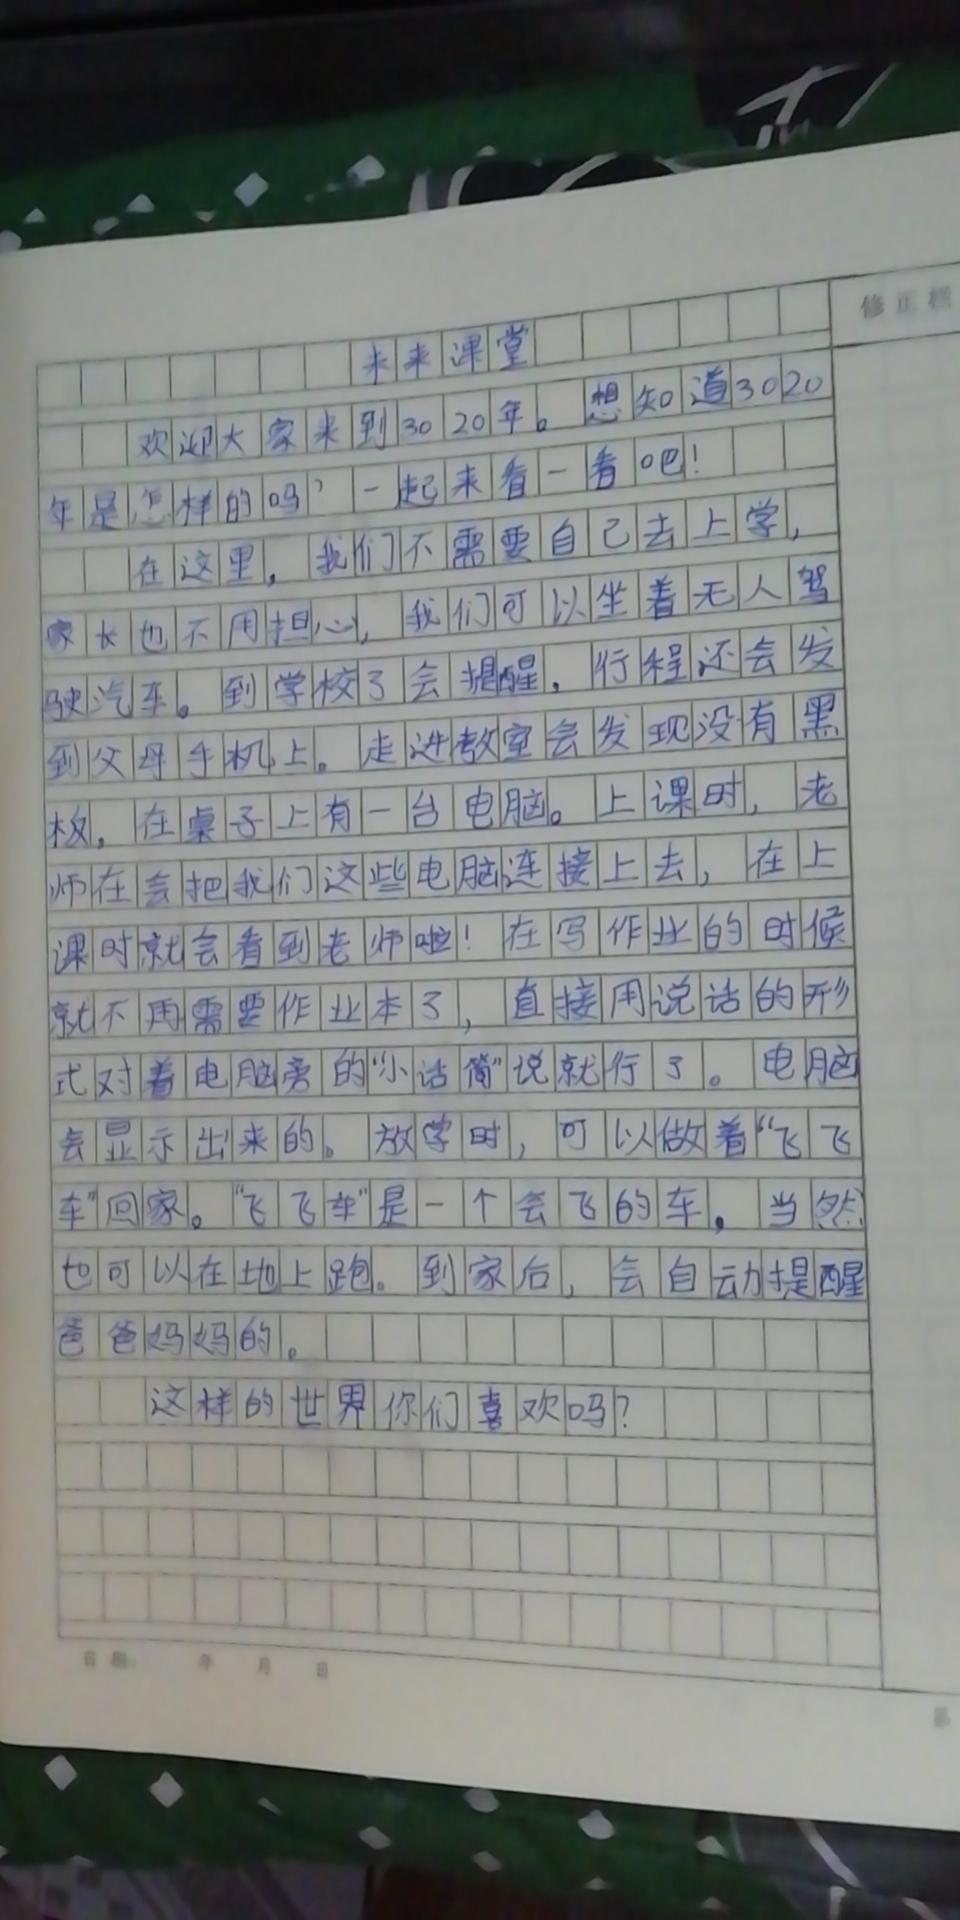 未来课堂
修正栏
欢迎大家来到3020年。想知道3020
年是怎样的吗？一起来看一看吧！
在这里，我们不需要自己去上学，
家长也不用担心，我们可以坐着无人驾
驶汽车。到学校了会提醒，行程还会发
到父母手机上。走进教室会发现没有黑
板，在桌子上有一台电脑。上课时，老
师在会把我们这些电脑连接上去，在上
课时就会看到老师啦！在写作业的时候
就不再需要作业本了，直接用说话的形
式对着电脑旁的“小话筒”说就行了。电脑
会显示出来的。放学时，可以做着“飞飞
车”回家。“飞飞车”是一个会飞的车，当然
也可以在地上跑。到家后，会自动提醒
爸爸妈妈的。
这样的世界你们喜欢吗？
日期： 年 月 日
第